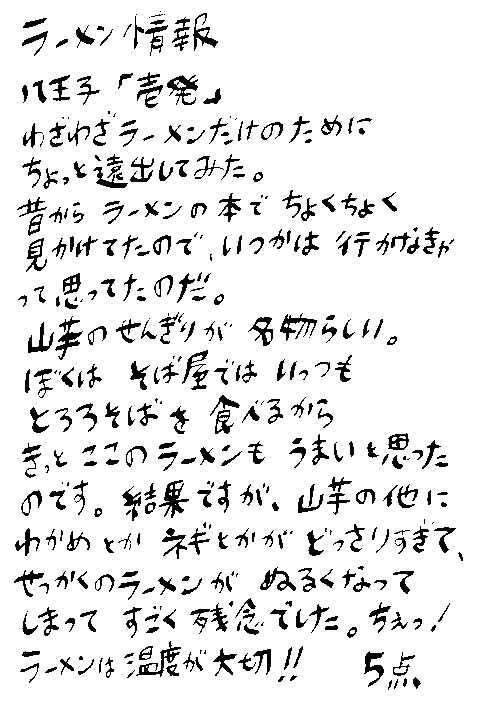 ラーメン情報
八王子「壱発」
わざわざラーメンだけのために
ちょっと遠出してみた。
昔から ラーメンの本で ちょくちょく
見かけてたので、いつかは 行かなきゃ
って思ってたのだ。
山芋のせんぎりが 名物らしい。
ぼくは そば屋では いっつも
とろろそばを 食べるから
きっと ここのラーメンも うまいと思った
のです。結果ですが、山芋の他に
わかめとか ネギとかが どっさりすぎて、
せっかくのラーメンが ぬるくなって
しまって すごく 残念でした。ちぇっ!
ラーメンは 温度が大切!! 5点、